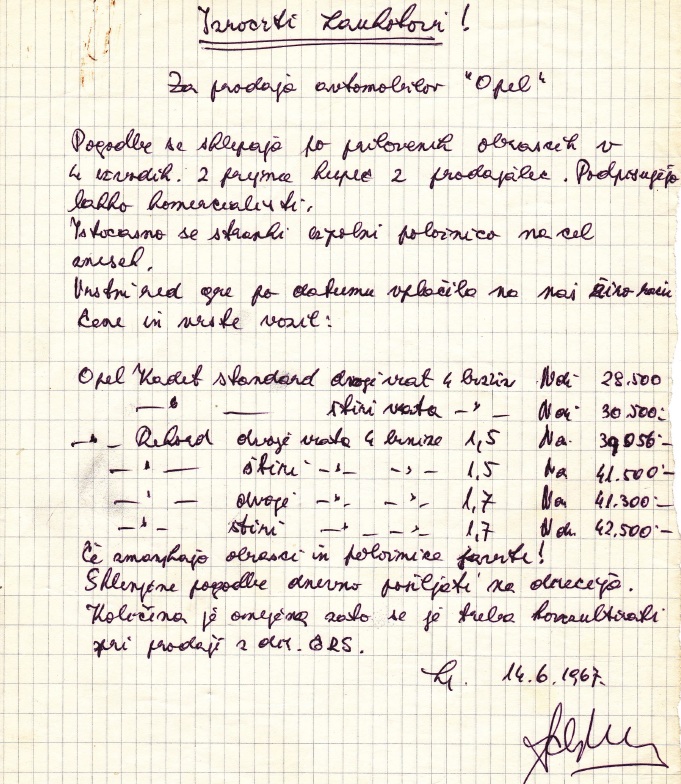 Izročiti Lauhotovi!
Za prodajo avtomobilov "Opel"
Pogodbe se sklepajo po priloženih obrazcih v
4 izvodih. 2 prejme kupec 2 prodajalec. Podpisujejo
lahko komercialisti.
Istočasno se stranki izpolni položnico na cel
znesek.
Vrstni red gre po datumu vplačila na naš žiro račun
Cene in vrste vozil:
Opel Kadet standard dvoje vrat 4 brzine Ndi 28.500
—"— štiri vrata —"— Ndi 30.500:-
—"— Rekord dvoje vrata 4 brzine 1,5 Nd. 39056:-
—"— štiri —"— —"— 1,5 Nd 41.500:-
—"— dvoje —"— —"— 1,7 Nd 41.300:-
—"— štiri —"— —"— 1,7 Ndi. 42.500:-
Če zmanjkajo obrazci in položnice javite!
Sklenjene pogodbe dnevno pošiljati na direkcijo.
Količina je omejena zato se je treba konzultirati
pri prodaji z dir. ORS.
Lj. 14.6.1967.